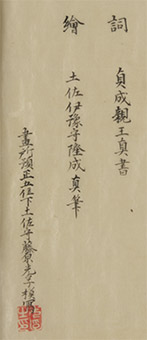 詞 貞成親王真書
繪 土佐伊豫守隆成真筆
畫所預正五位下土佐守藤原光孚模寫